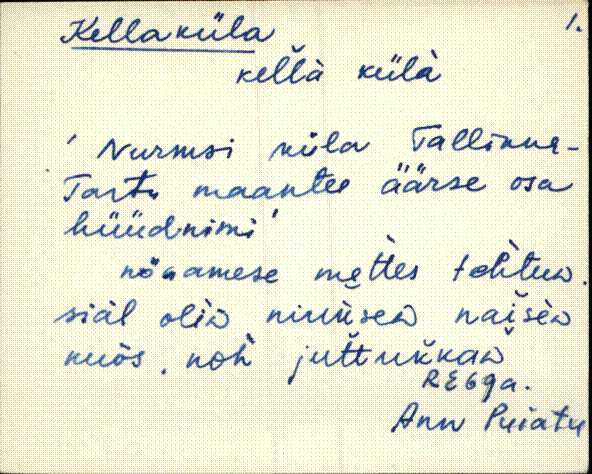 Kellaküla 1.
kellà külà
' Nurmsi küla Tallinna-
Tartu maantee äärse osa
hüüdnimi'
mettes tehtuw.
siäl oliw naišèw
kuòs, noh juttukkaw
RE69a.
Ann Puiatu